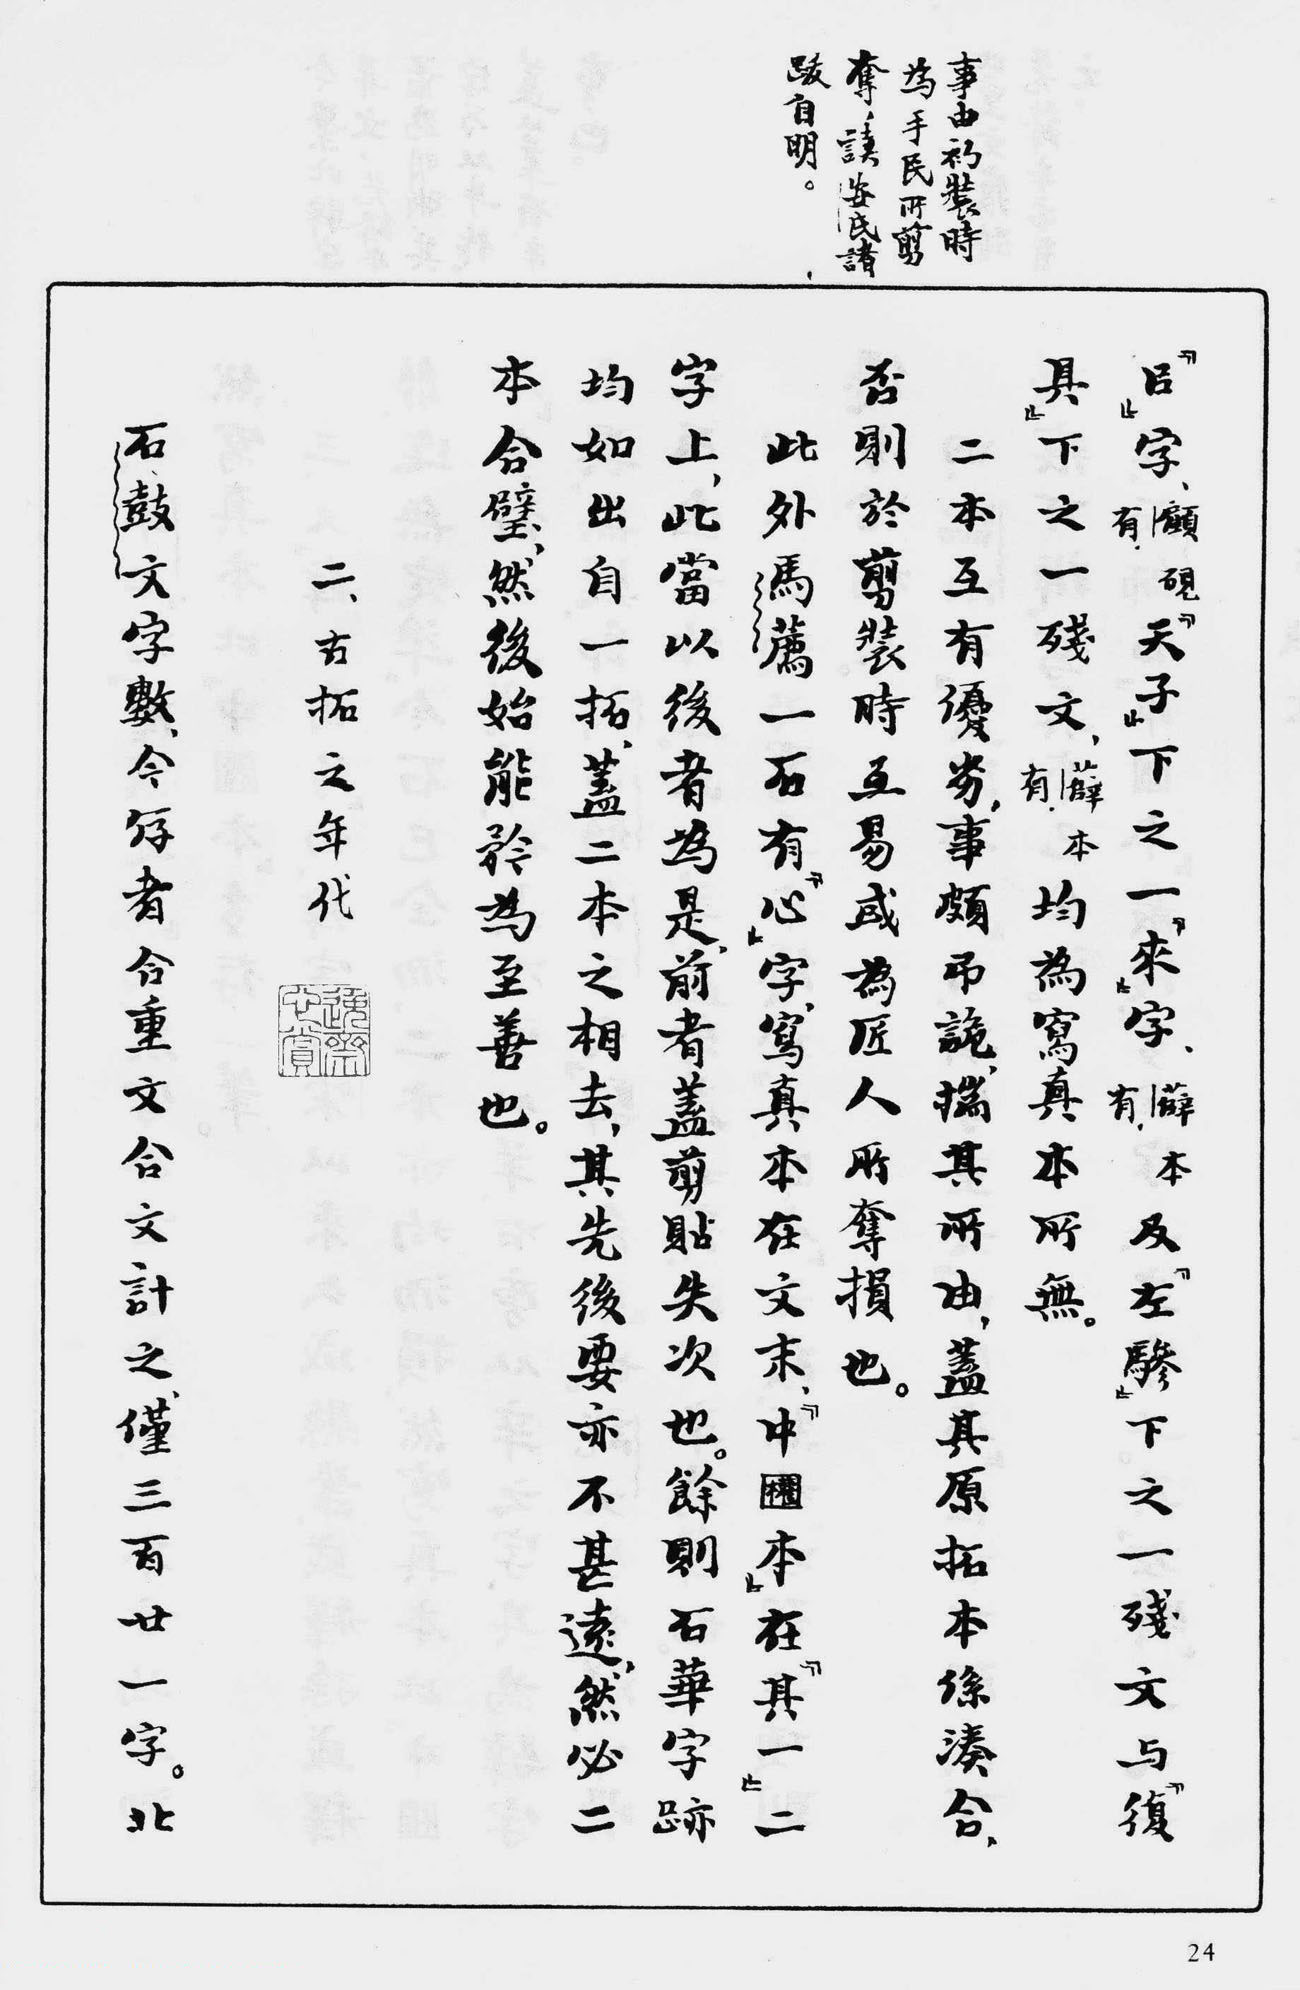 事由初裝時
為手民所剪
奪，讀安氏諸
跋自明。
『㠯』字、顧硯有.『天子』下之一『來』字、薛本有.及『左驂』下之一殘文与『復
具』下之一殘文，薛本有.均為寫真本所無。
二本互有優劣，事頗弔詭，揣其所由，蓋其原拓本係湊合，
否則於剪裝時互易或為匠人所奪損也。
此外馬薦一石有『心』字，寫真本在文末，『中權本』在『其一』二
字上，此當以後者為是，前者蓋剪貼失次也。餘則石華字跡
均如出自一拓，蓋二本之相去，其先後要亦不甚遠，然必二
本合璧，然後始能矜為至善也。
二、古拓之年代
石鼓文字數，今存者合重文合文計之，僅三百廿一字。北
24